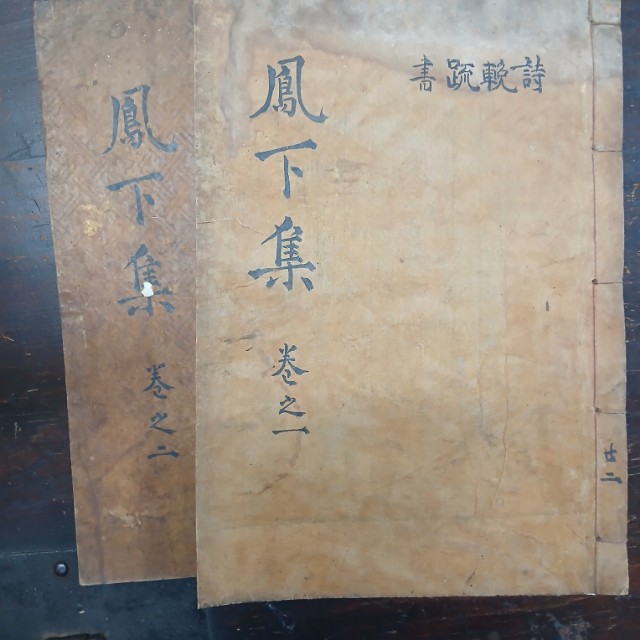 詩輓疏書
鳳下集 卷之一
廿二
鳳下集 卷之二